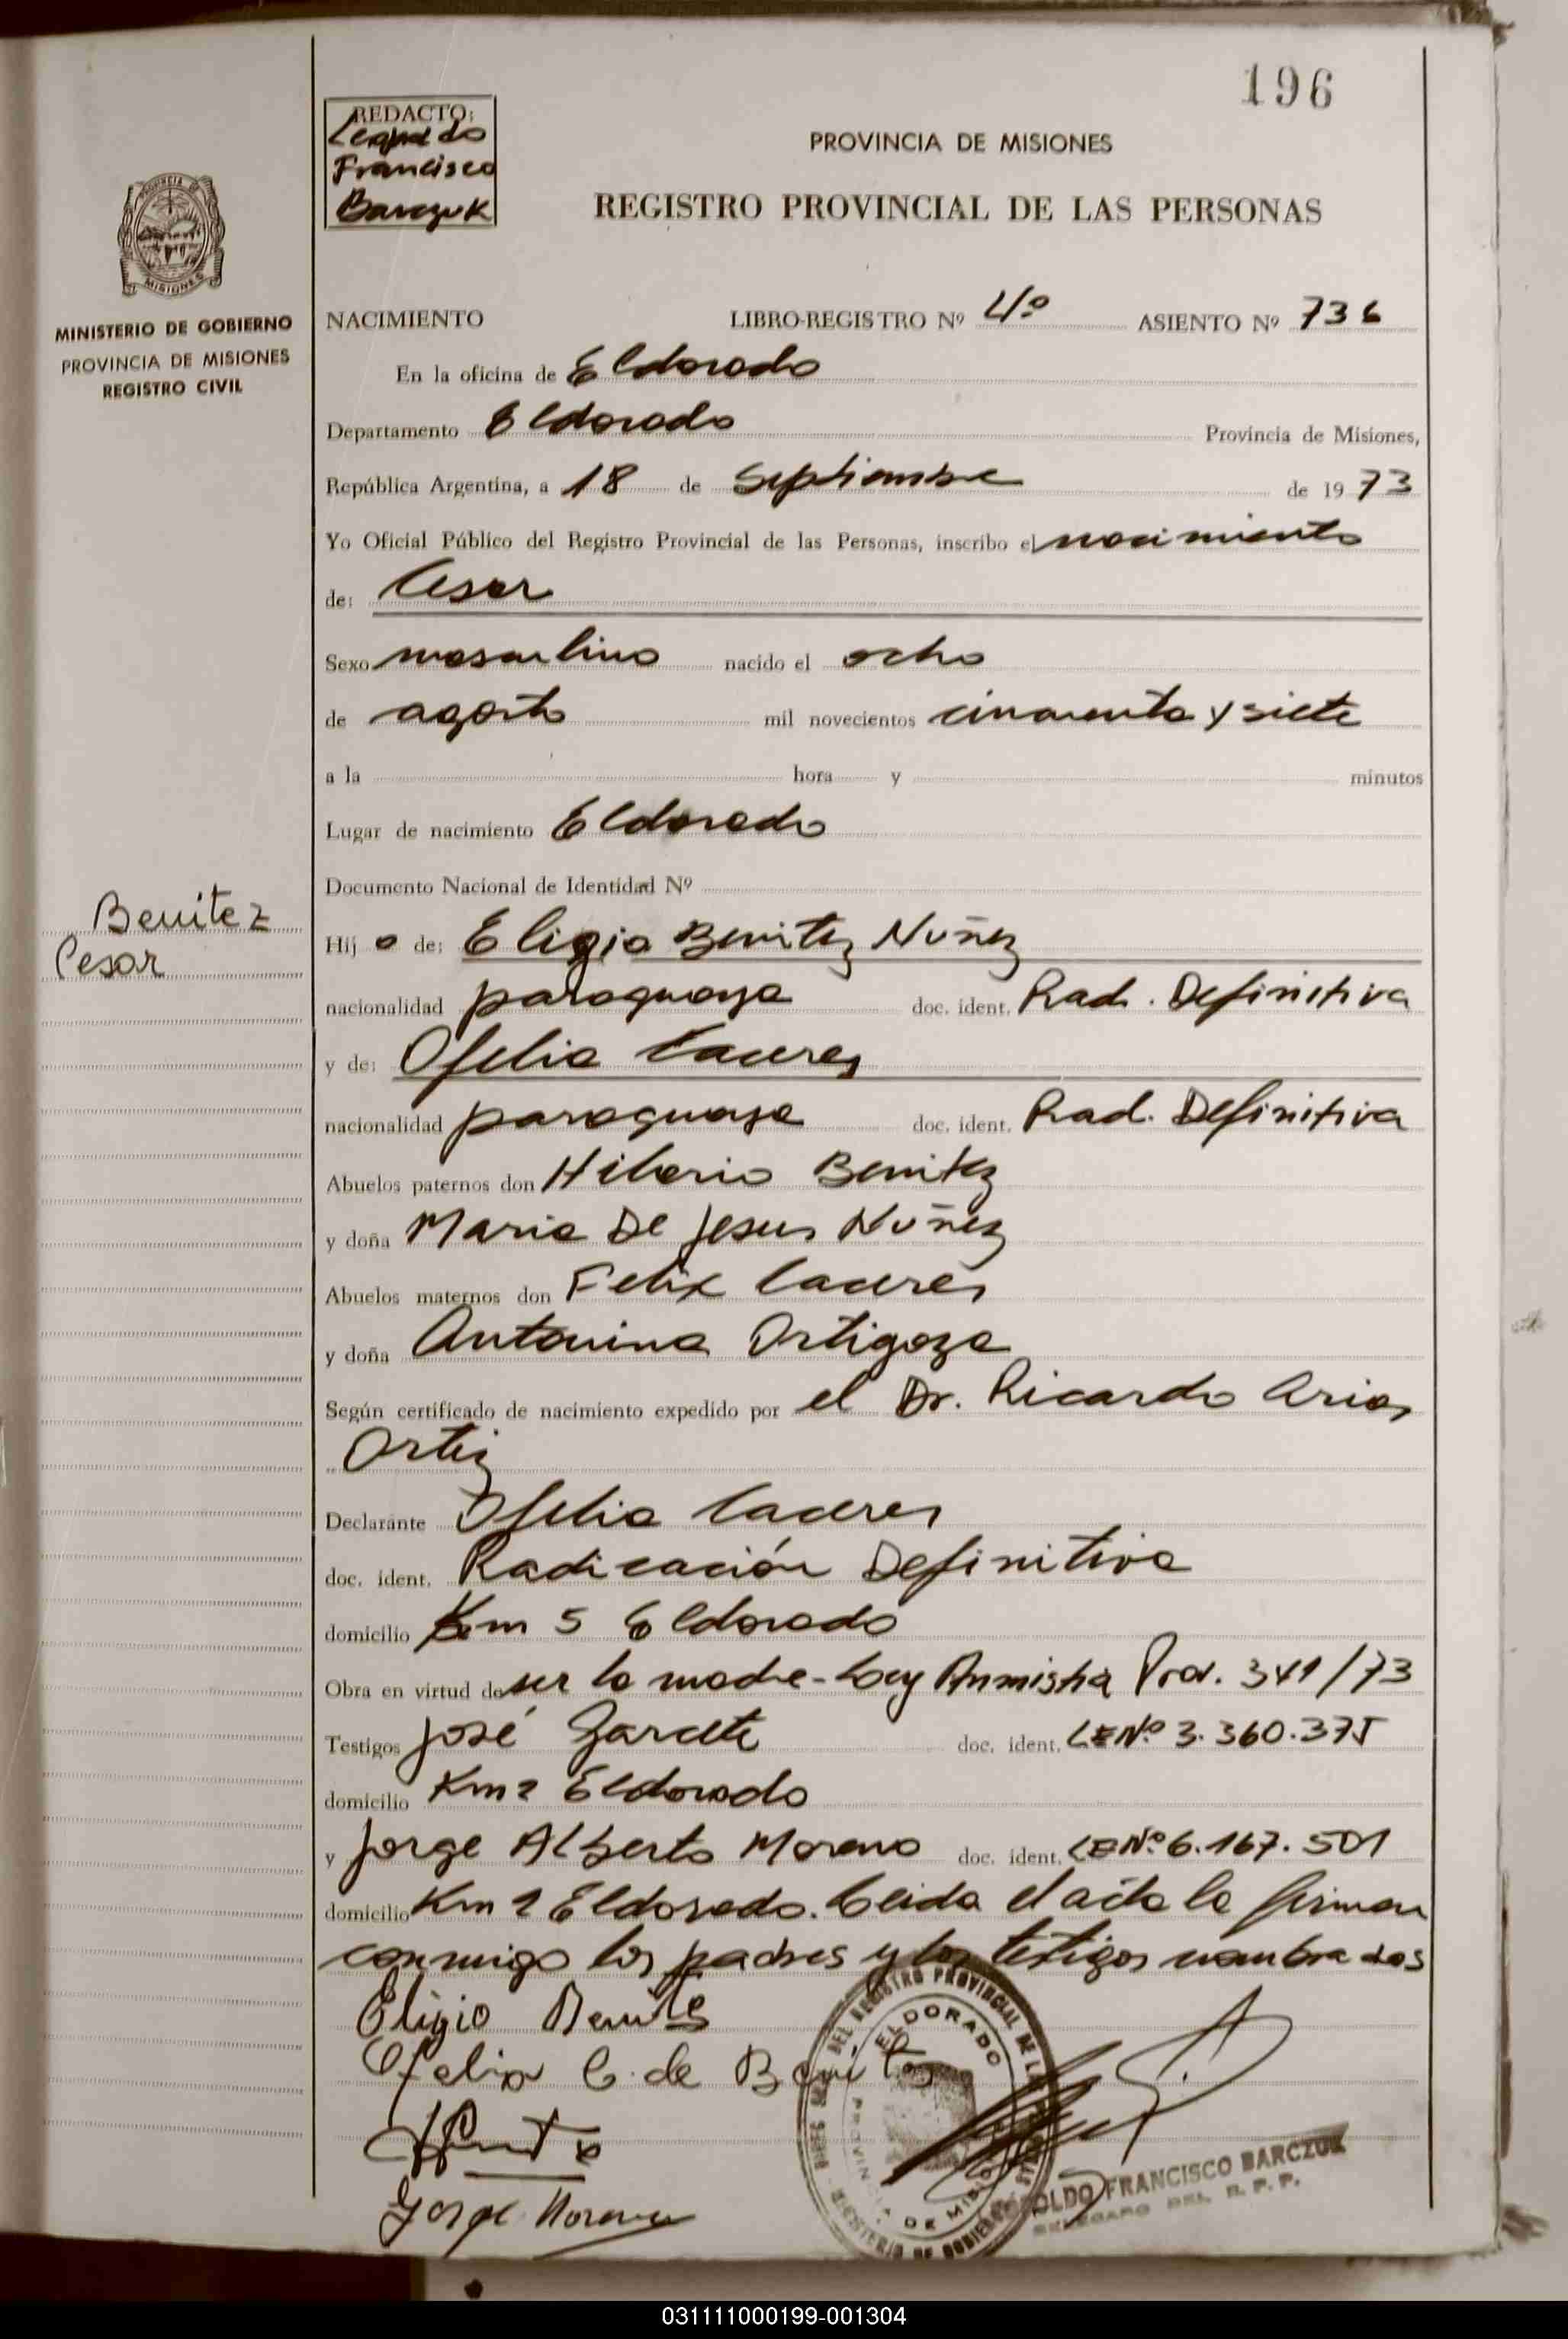 196
REDACTO:
Leopoldo
Francisco
Barczuk
PROVINCIA DE MISIONES
REGISTRO PROVINCIAL DE LAS PERSONAS
PROVINCIA DE
MISIONES
MINISTERIO DE GOBIERNO
PROVINCIA DE MISIONES
REGISTRO CIVIL
NACIMIENTO LIBRO-REGISTRO Nº 4º ASIENTO Nº 736
En la oficina de Eldorado
Departamento Eldorado Provincia de Misiones,
República Argentina, a 18 de Septiembre de 1973
Yo Oficial Público del Registro Provincial de las Personas, inscribo el nacimiento
de: Cesar
Sexo masculino nacido el ocho
de agosto mil novecientos cincuenta y siete
a la hora y minutos
Lugar de nacimiento Eldorado
Documento Nacional de Identidad Nº
Benitez
Cesar
Hij o de: Eligio Benitez Nuñez
nacionalidad paraguaya doc. ident. Rad. Definitiva
y de: Ofelia Caceres
nacionalidad paraguaya doc. ident. Rad. Definitiva
Abuelos paternos don Hilario Benitez
y doña Maria De Jesus Nuñez
Abuelos maternos don Felix Caceres
y doña Antonina Ortigoza
Según certificado de nacimiento expedido por el Dr. Ricardo Arias
Ortiz
Declarante Ofelia Caceres
doc. ident. Radicación Definitiva
domicilio Km 5 Eldorado
Obra en virtud de ser la madre-Ley Amnistia Prov. 341/73
Testigos José Zarate doc. ident. LE Nº 3.360.375
domicilio Km 2 Eldorado
y Jorge Alberto Moreno doc. ident. LE Nº 6.167.501
domicilio Km 2 Eldorado. Leida el acta la firman
conmigo los padres y los testigos nombrados
Eligio Benitez
Ofelia C. de Benitez
Jorge Moreno
DEL REGISTRO PROVINCIAL DE LAS PERSONAS
ELDORADO
PROVINCIA DE MISIONES
MINISTERIO DE GOBIERNO
OLDO FRANCISCO BARCZUK
DELEGADO DEL R. P. P.
031111000199-001304